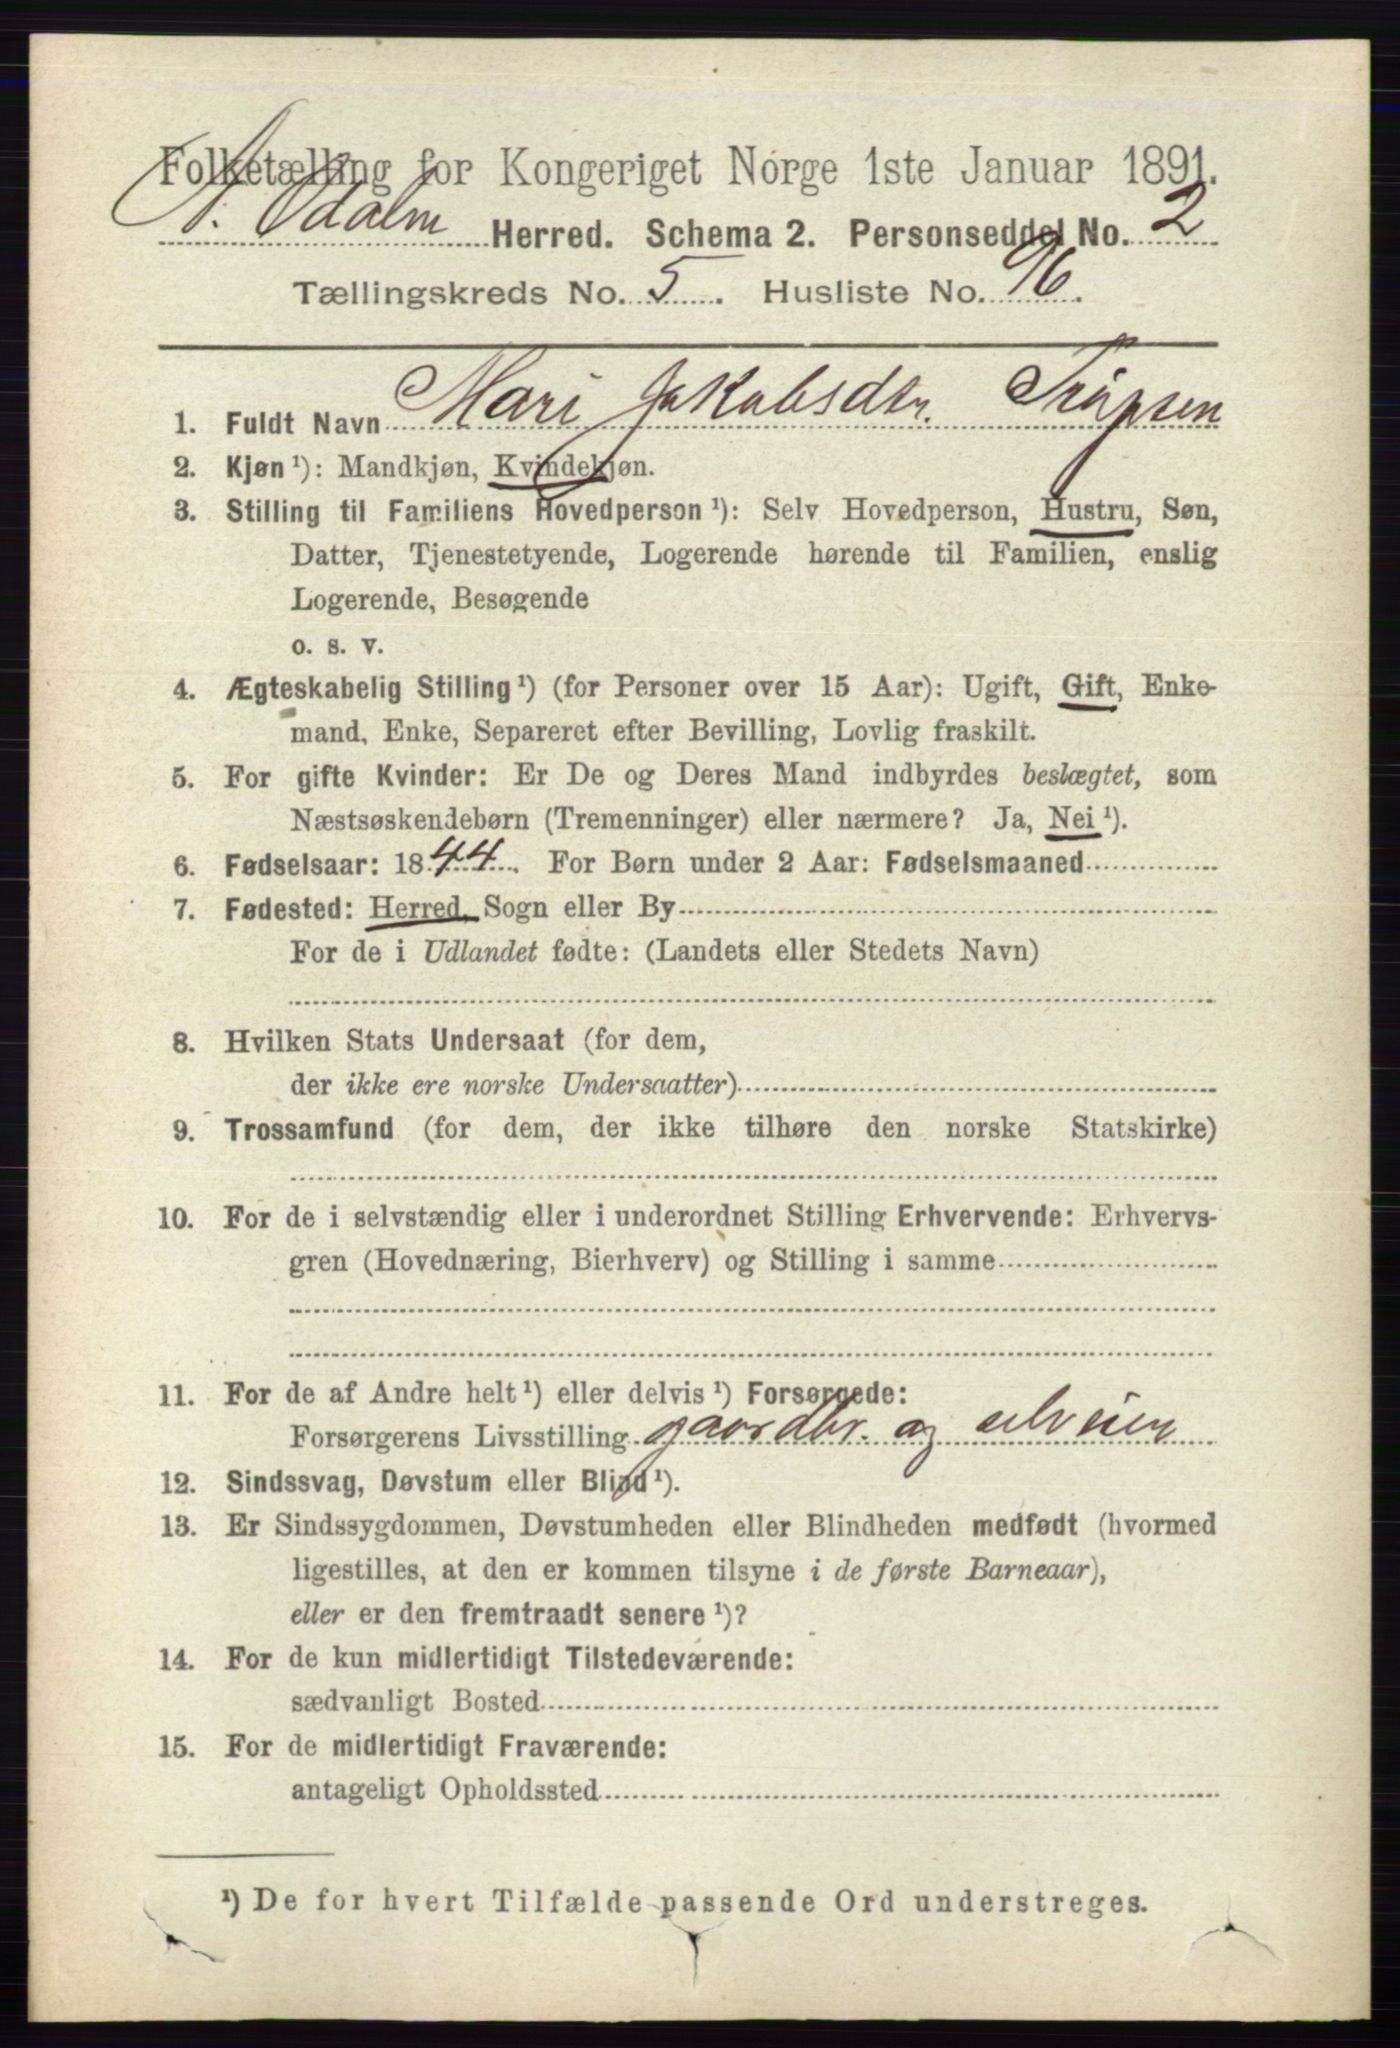 Folketælling for Kongeriget Norge 1ste Januar 1891.
N. Odalen Herred. Schema 2. Personseddel No. 2
Tællingskreds No. 5. Husliste No. 96.
1. Fuldt Navn Mari Jakobsdtr.
2. Kjøn ¹): Mandkjøn, Kvindekjøn.
3. Stilling til Familiens Hovedperson ¹): Selv Hovedperson, Hustru, Søn,
Datter, Tjenestetyende, Logerende hørende til Familien, enslig
Logerende, Besøgende
o. s. v.
4. Ægteskabelig Stilling ¹) (for Personer over 15 Aar): Ugift, Gift, Enke-
mand, Enke, Separeret efter Bevilling, Lovlig fraskilt.
5. For gifte Kvinder: Er De og Deres Mand indbyrdes beslægtet, som
Næstsøskendebørn (Tremenninger) eller nærmere? Ja, Nei ¹).
6. Fødselsaar: 1844. For Børn under 2 Aar: Fødselsmaaned
7. Fødested: Herred, Sogn eller By
For de i Udlandet fødte: (Landets eller Stedets Navn)
8. Hvilken Stats Undersaat (for dem,
der ikke ere norske Undersaatter)
9. Trossamfund (for dem, der ikke tilhøre den norske Statskirke)
10. For de i selvstændig eller i underordnet Stilling Erhvervende: Erhvervs-
gren (Hovednæring, Bierhverv) og Stilling i samme
11. For de af Andre helt ¹) eller delvis ¹) Forsørgede:
Forsørgerens Livsstilling gaardbr. og selveier
12. Sindssvag, Døvstum eller Blind ¹).
13. Er Sindssygdommen, Døvstumheden eller Blindheden medfødt (hvormed
ligestilles, at den er kommen tilsyne i de første Barneaar),
eller er den fremtraadt senere ¹)?
14. For de kun midlertidigt Tilstedeværende:
sædvanligt Bosted
15. For de midlertidigt Fraværende:
antageligt Opholdssted
¹) De for hvert Tilfælde passende Ord understreges.